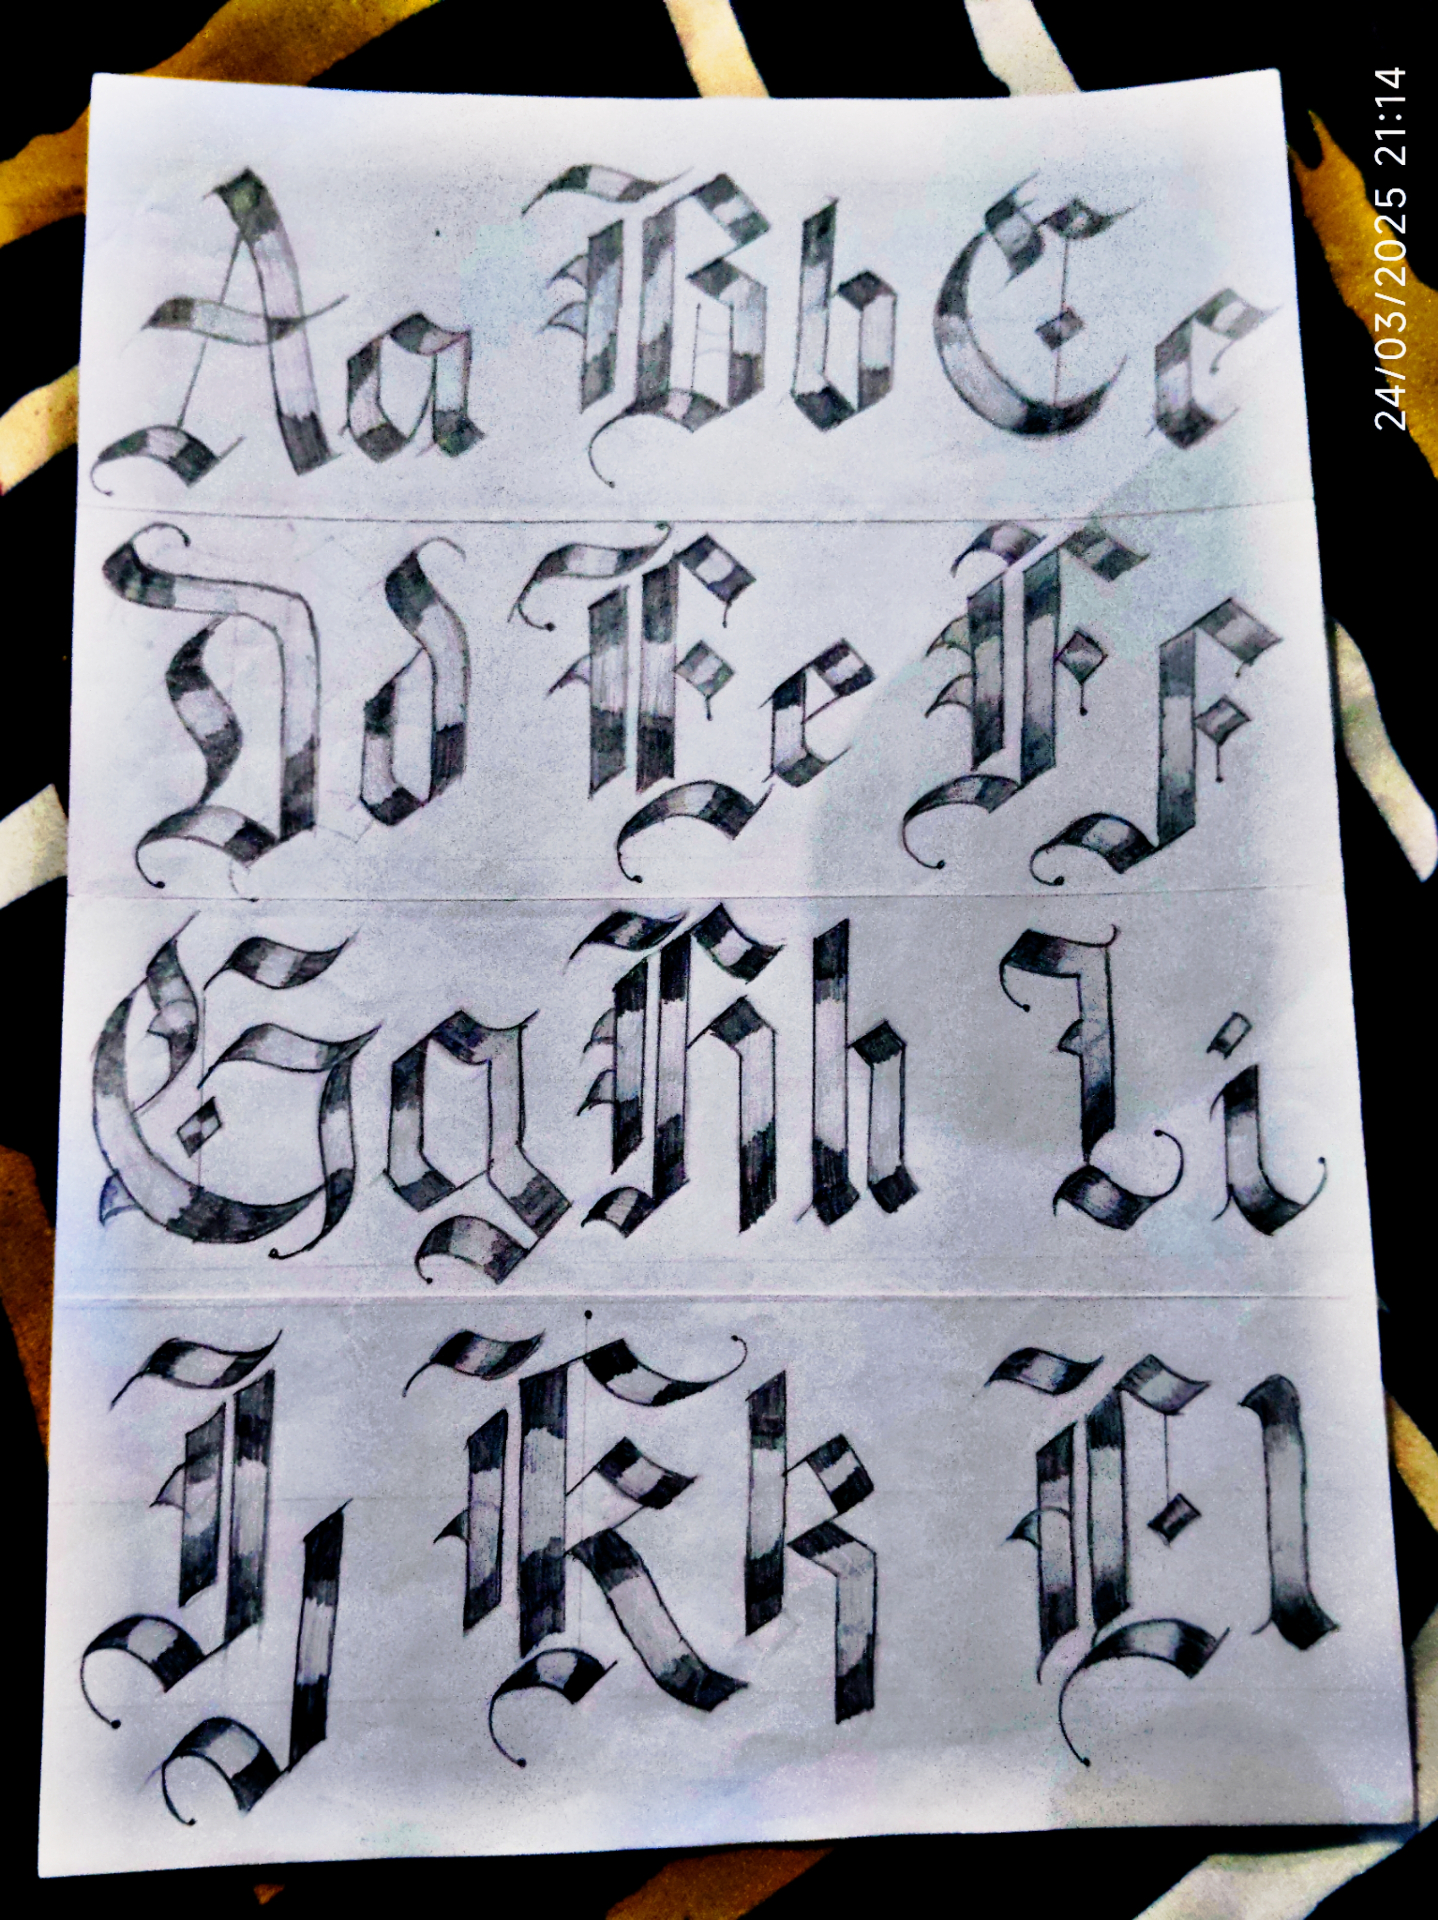 Aa Bb Cc
Dd Ee Ff
Gg Hh Ii
Jj Kk Ll
24/03/2025 21:14